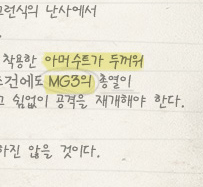 그런식의 난사에서
착용한 아머수트가 두꺼워
조건에도 MG3의 총열이
고 쉼없이 공격을 재개해야 한다.
하진 않을 것이다.